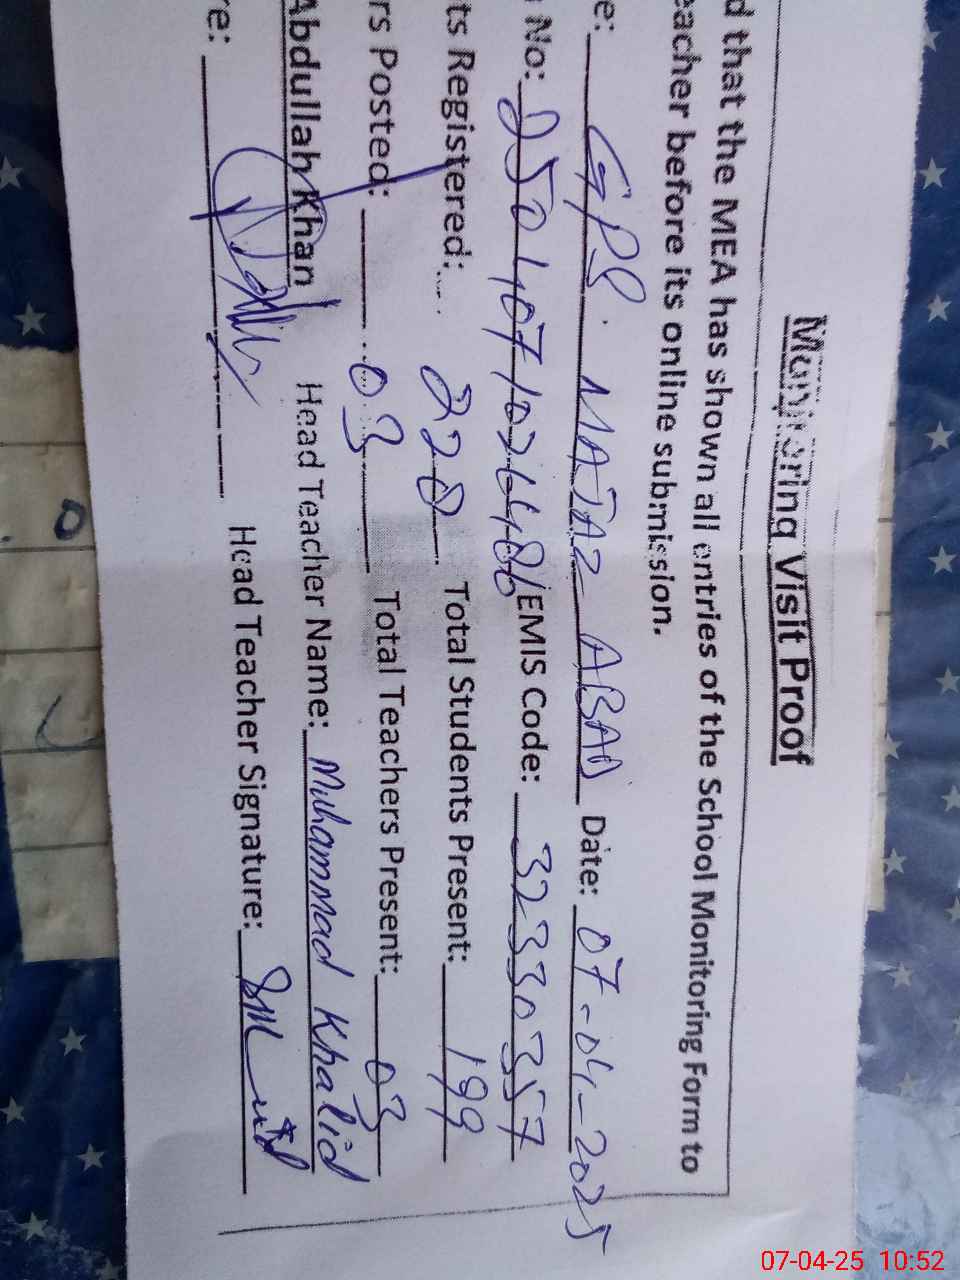 Monitoring Visit Proof
d that the MEA has shown all entries of the School Monitoring Form to
eacher before its online submission.
e: GPS. MAJAZ ABAD Date: 07-04-2025
No: EMIS Code: 32330357
ts Registered: 228 Total Students Present: 199
rs Posted: 03 Total Teachers Present: 03
Abdullah Khan Head Teacher Name: Muhammad Khalid
re: Head Teacher Signature:
07-04-25 10:52